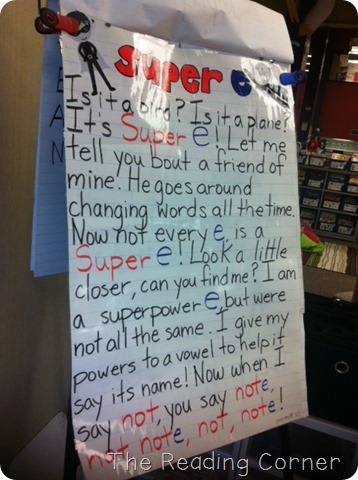 super e
Is it a bird? Is it a plane?
It's Super e! Let me
tell you bout a friend of
mine. He goes around
changing words all the time.
Now not every e is a
Super e! Look a little
closer, can you find me? I am
a superpower e but were
not all the same. I give my
powers to a vowel to help it
say its name! Now when I
say not, you say note,
not note, not, note!
The Reading Corner